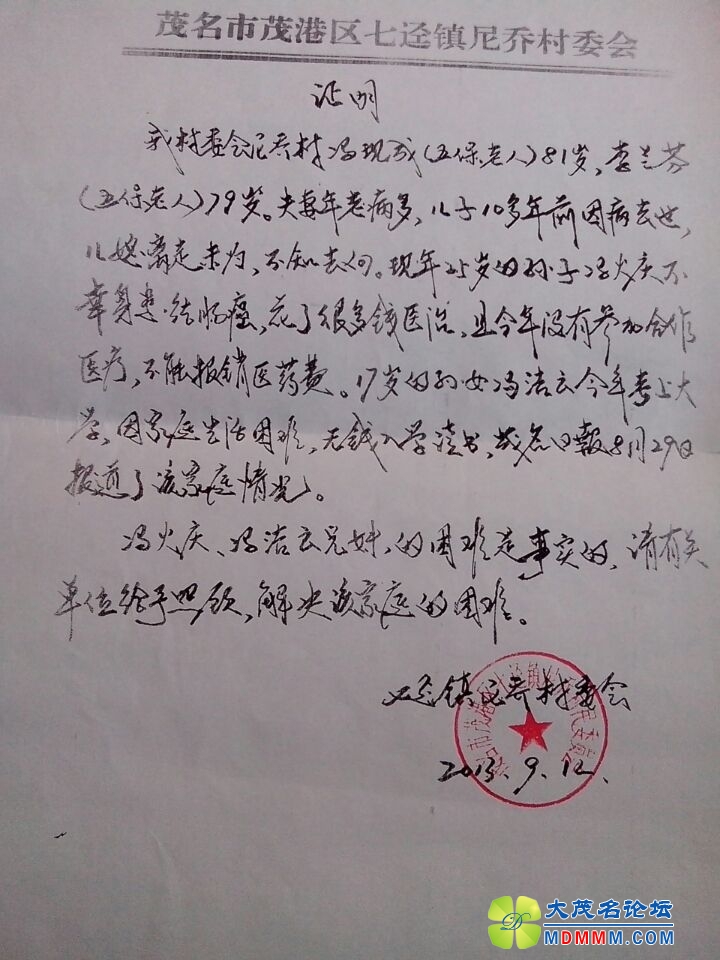 茂名市茂港区七迳镇尼乔村委会
证明
我村委会尼乔村冯现成(五保老人)81岁,李兰芬
(五保老人)79岁。夫妻年老病多,儿子10多年前因病去世,
儿媳离走未归,不知去向。现年25岁的孙子冯火庆不
幸身患结肠癌,花了很多钱医治,且今年没有参加合作
医疗,不能报销医药费。17岁的孙女冯洁云今年考上大
学,因家庭生活困难,无钱入学读书,茂名日報8月29日
报道了该家庭情况。
冯火庆、冯洁云兄妹,的困难是事实的,请有关
单位给予照顾,解决该家庭的困难。
七迳镇尼乔村委会
2013.9.12.
大茂名论坛
MDMMM.COM